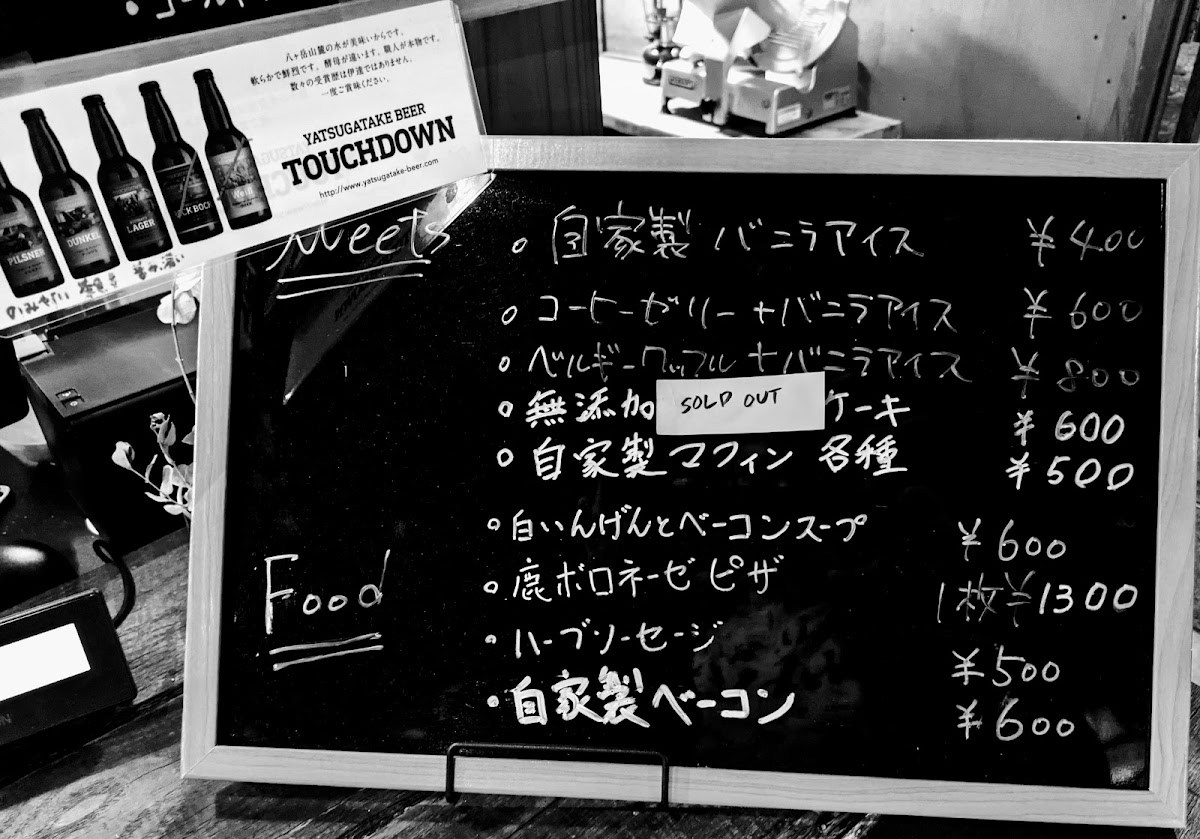 八ヶ岳山麓の水が美味いからです。
軟らかで鮮烈です。酵母が違います。職人が本物です。
数々の受賞歴は伊達ではありません。
一度ご賞味ください。
YATSUGATAKE BEER
TOUCHDOWN
http://www.yatsugatake-beer.com
PILSNER
DUNKEL
LAGER
ROCK BOCK
weets
○ 自家製 バニラアイス ¥400
○ コーヒーゼリー+バニラアイス ¥600
○ ベルギーワッフル+バニラアイス ¥800
○ 無添加 SOLD OUT ケーキ ¥600
○ 自家製マフィン 各種 ¥500
Food
• 白いんげんとベーコンスープ ¥600
○ 鹿ボロネーゼ ピザ 1枚¥1300
• ハーブソーセージ ¥500
• 自家製ベーコン ¥600